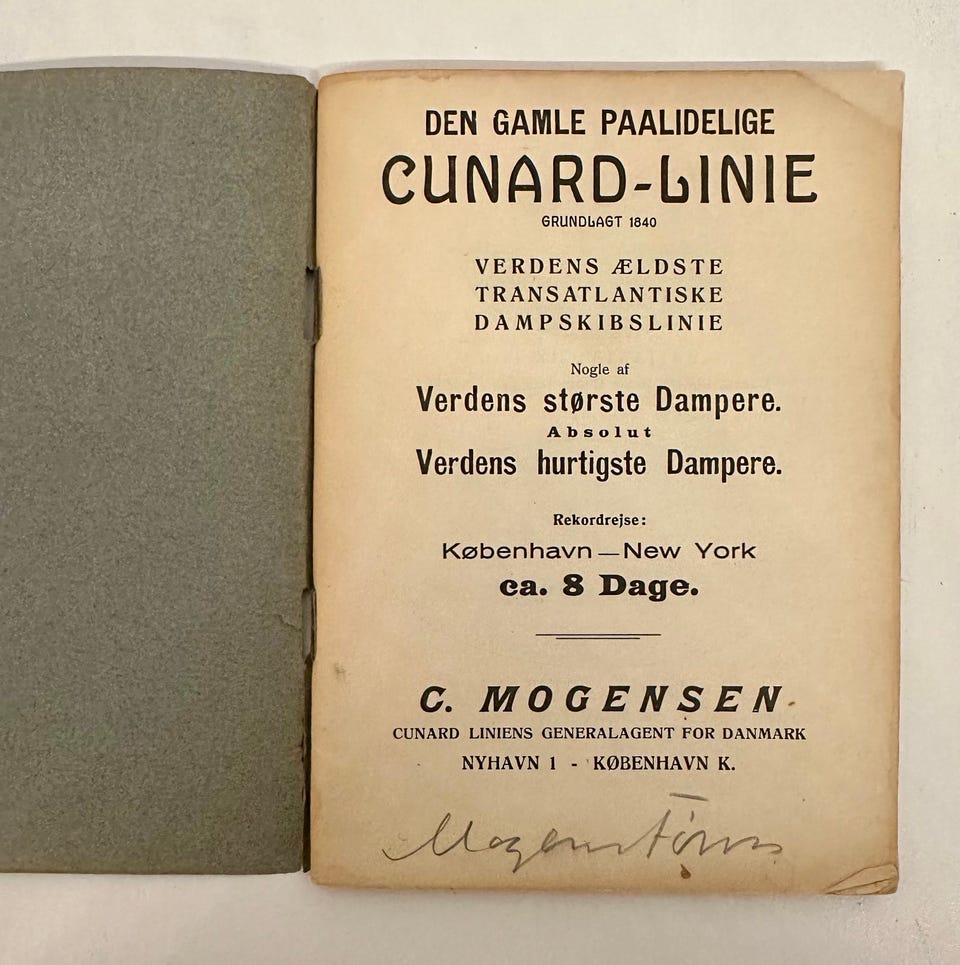 DEN GAMLE PAALIDELIGE
CUNARD-LINIE
GRUNDLAGT 1840
VERDENS ÆLDSTE
TRANSATLANTISKE
DAMPSKIBSLINIE
Nogle af
Verdens største Dampere.
Absolut
Verdens hurtigste Dampere.
Rekordrejse:
København—New York
ca. 8 Dage.
C. MOGENSEN
CUNARD LINIENS GENERALAGENT FOR DANMARK
NYHAVN 1 - KØBENHAVN K.